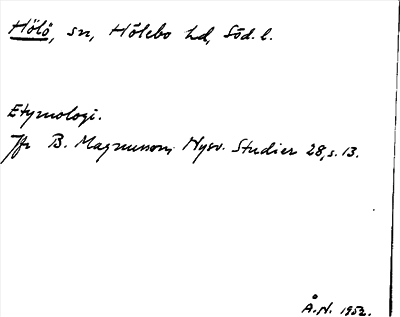 Hölö, sn, Hölebo hd, Söd. l.
Etymologi.
Jfr B. Magnusson, Nysv. Studier 28, s. 13.
Å. N. 1952.